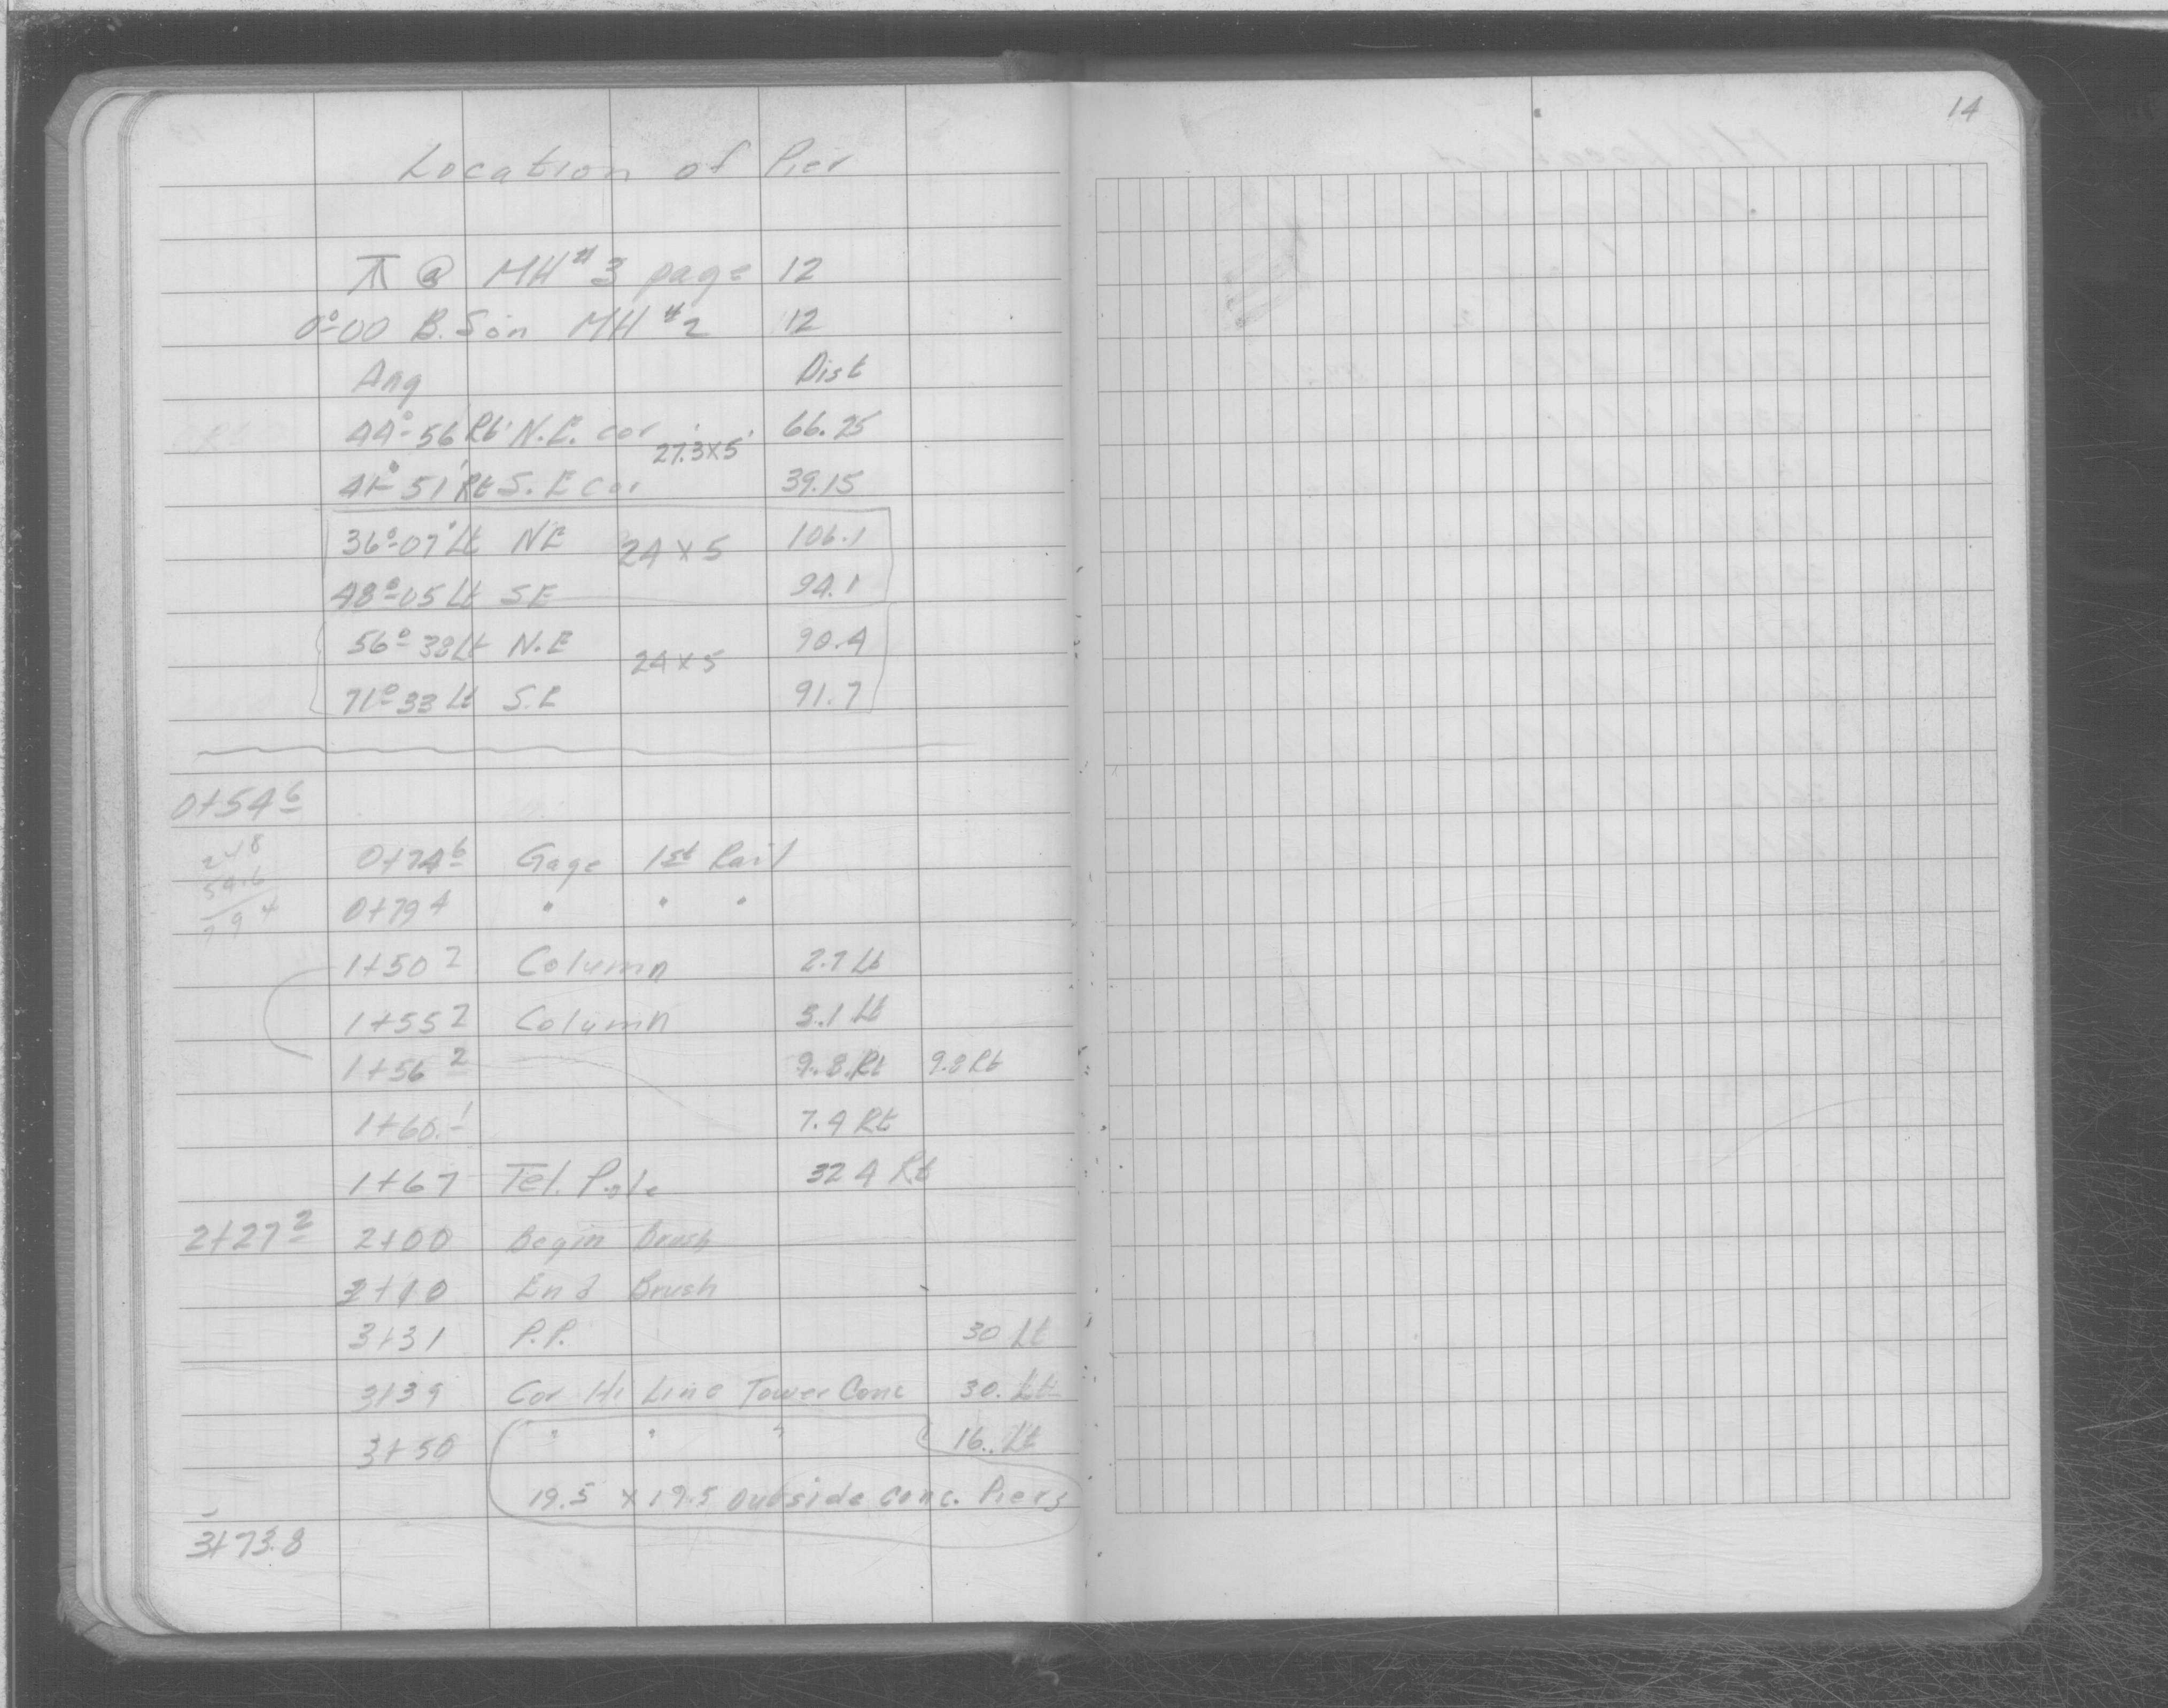 14
Location of Pier
⊼ @ MH #3 page 12
0°-00 B.S on MH #2 12
Ang Dist
44°-56' Rt N.E. cor 66.25
27.3' x 5'
41°-51' Rt S.E cor 39.15
36°-07' Lt NE 106.1
24 x 5
48°-05 Lt SE 94.1
56°-38 Lt N.E 90.4
24 x 5
71°-33 Lt S.E 91.7
0+54 6
24.8
0+74 6 Gage 1st Rail
54.6
0+79 4 " " "
79 4
1+50 2 Column 2.7 Lt
1+55 2 Column 3.1 Lt
1+56 2 9.8 Rt 9.8 Rt
1+60.1 7.4 Rt
1+67 Tel. Pole 32 4 Rt
2+27 2 2+00 Begin Brush
End Brush
3+31 P.P. 30 Lt
3+39 Cor Hi Line Tower Conc 30. Lt
3+50 " " " 16. Lt
19.5 x 19.5 Outside Conc. Piers
3+73.8